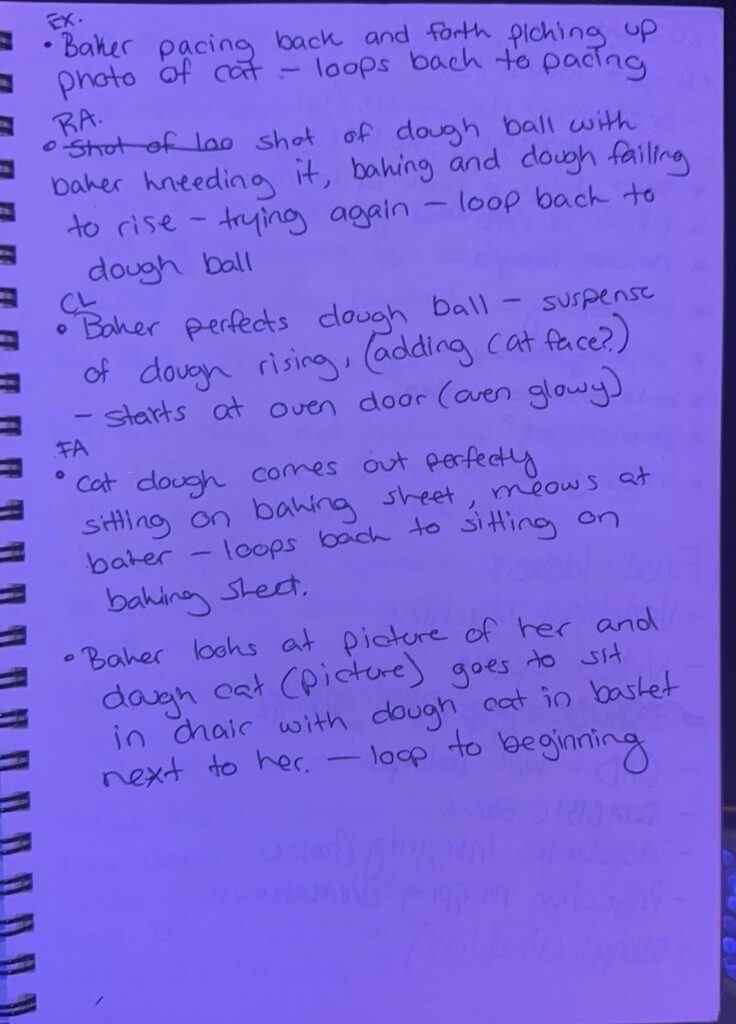 EX.
• Baker pacing back and forth picking up
photo of cat – loops back to pacing
RA.
• Shot of loo shot of dough ball with
baker kneeding it, baking and dough failing
to rise – trying again – loop back to
dough ball
CL
• Baker perfects dough ball – suspense
of dough rising, (adding cat face?)
– starts at oven door (oven glowy)
FA
• cat dough comes out perfectly
sitting on baking sheet, meows at
baker – loops back to sitting on
baking sheet.
• Baker looks at picture of her and
dough cat (picture) goes to sit
in chair with dough cat in basket
next to her. – loop to beginning